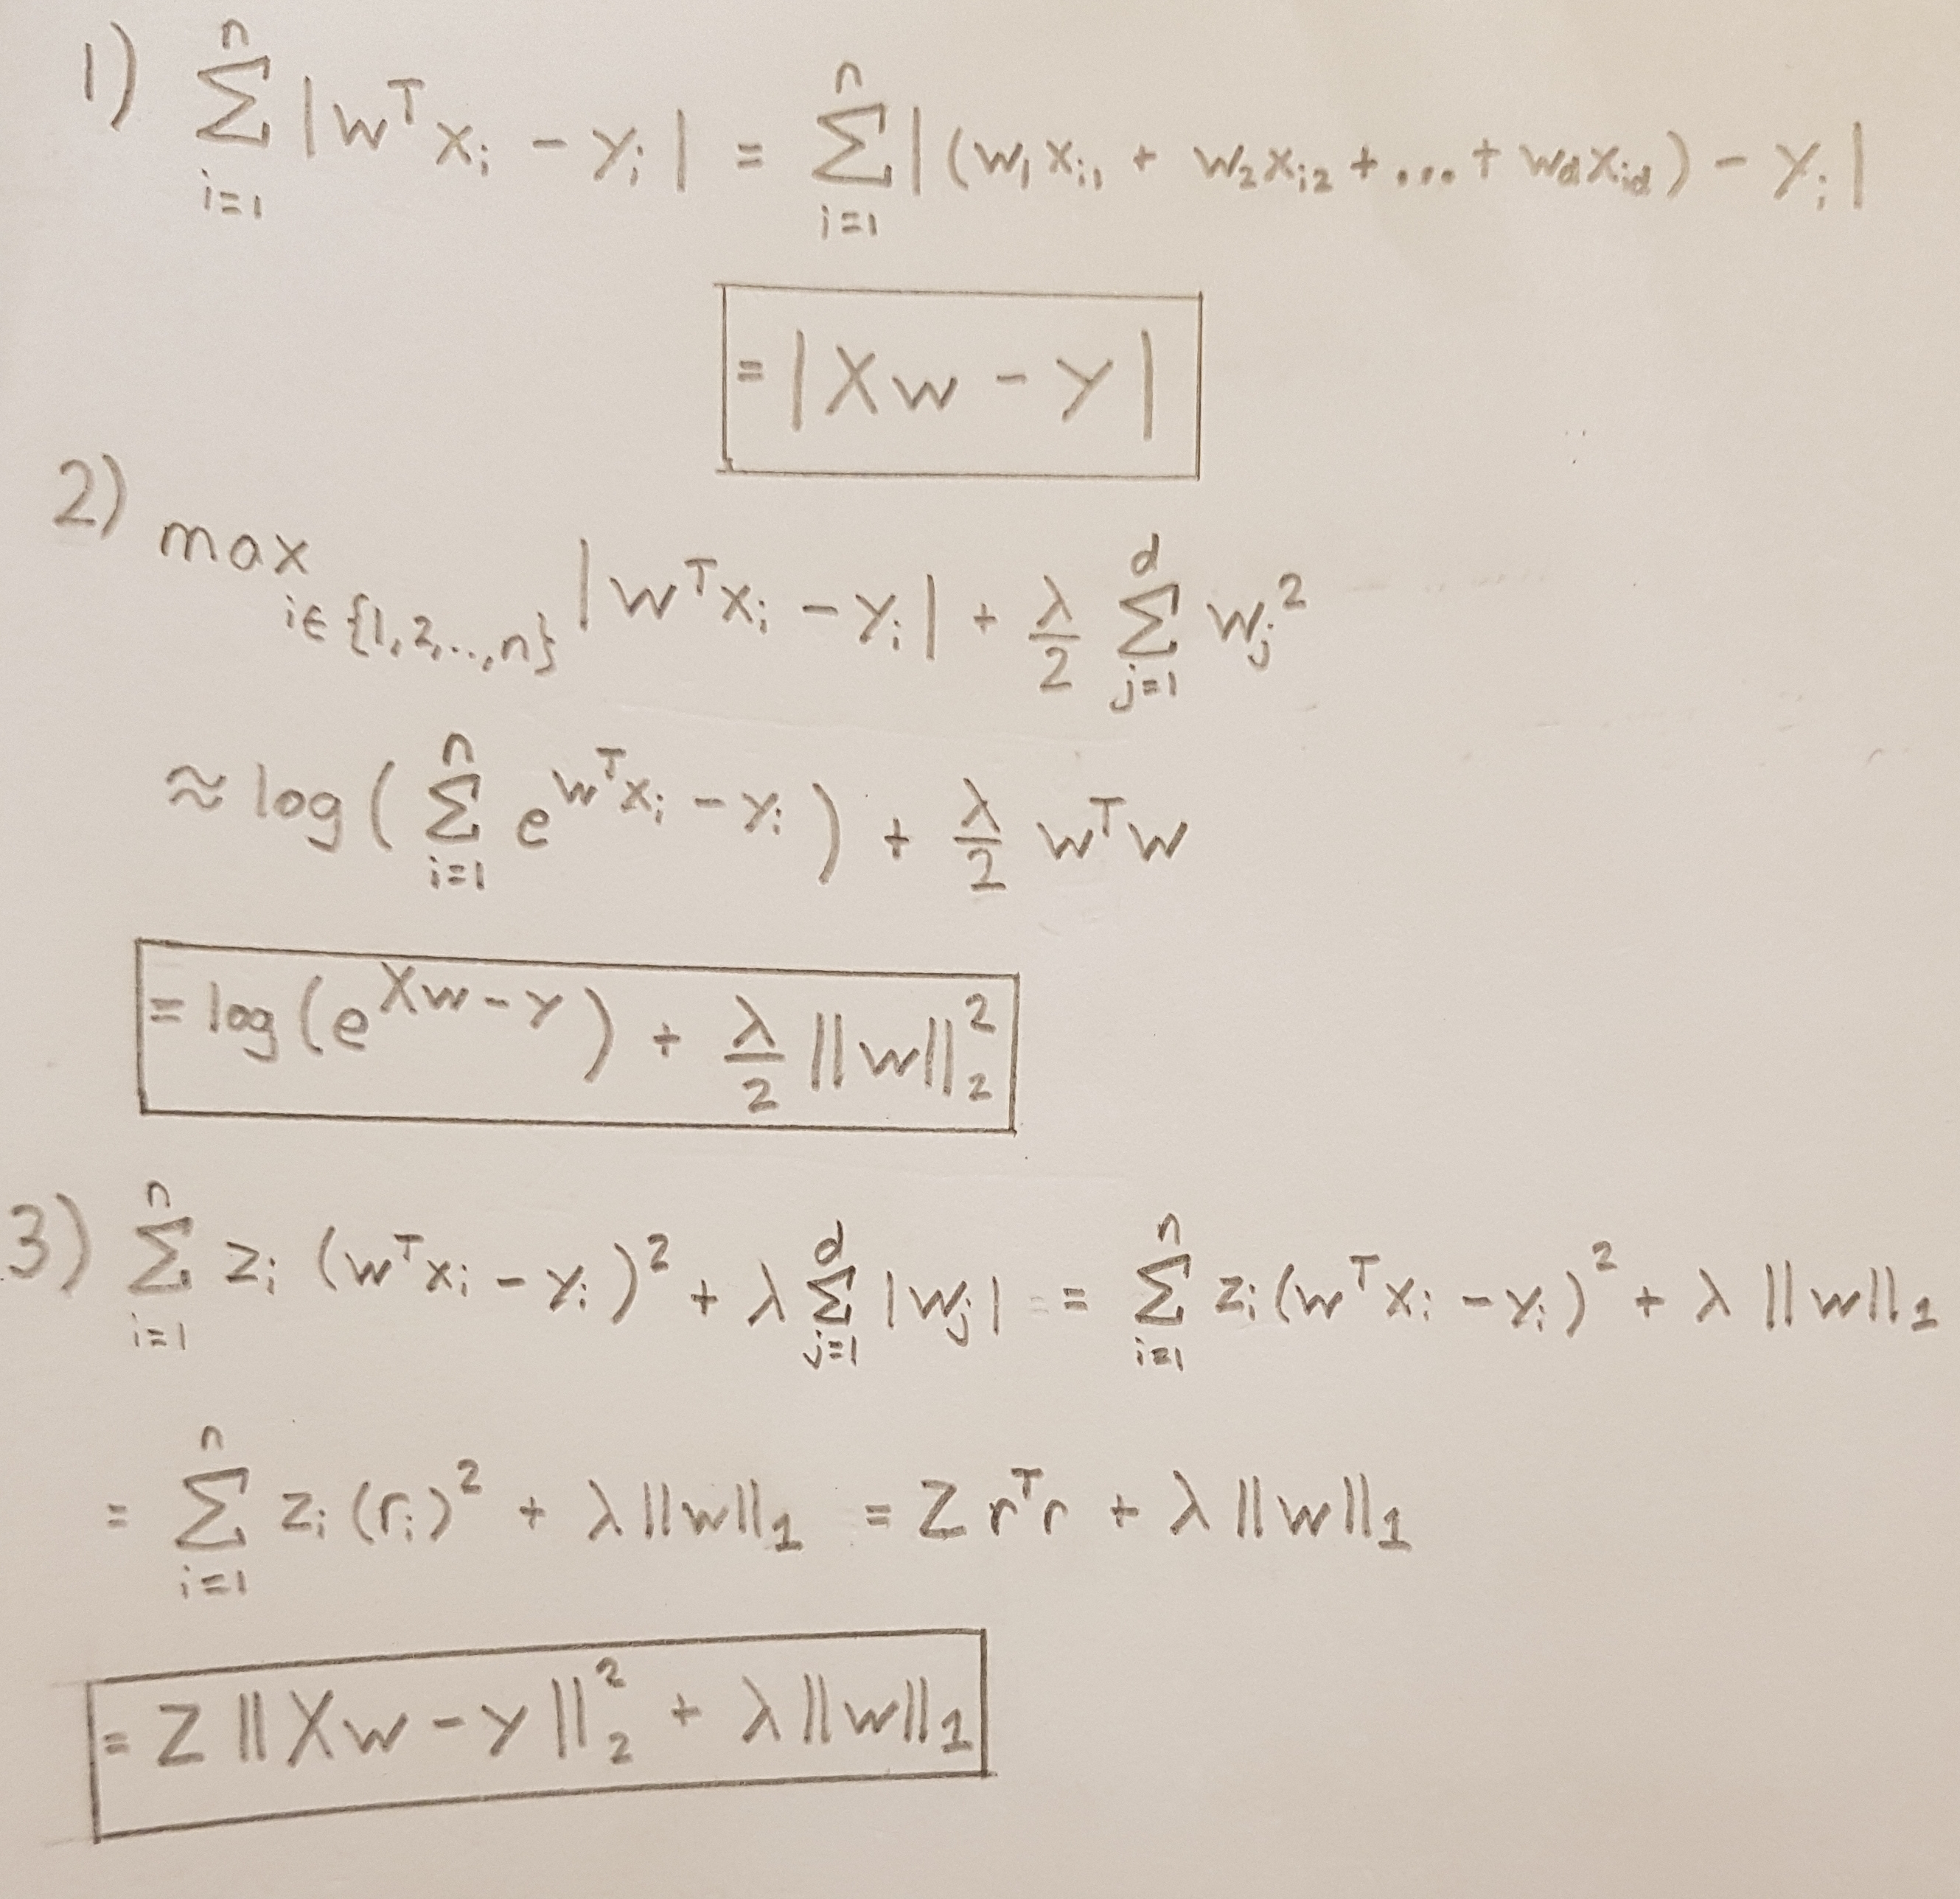 1) \sum_{i=1}^{n} |w^T x_i - y_i| = \sum_{i=1}^{n} |(w_1 x_{i1} + w_2 x_{i2} + ... + w_d x_{id}) - y_i|
= |Xw - y|
2) max_{i∈{1,2,..,n}} |w^T x_i - y_i| + \frac{λ}{2} \sum_{j=1}^{d} w_j^2
≈ log(\sum_{i=1}^{n} e^{w^T x_i - y_i}) + \frac{λ}{2} w^T w
= log(e^{Xw - y}) + \frac{λ}{2} ||w||_2^2
3) \sum_{i=1}^{n} z_i (w^T x_i - y_i)^2 + λ \sum_{j=1}^{d} |w_j| = \sum_{i=1}^{n} z_i (w^T x_i - y_i)^2 + λ ||w||_1
= \sum_{i=1}^{n} z_i (r_i)^2 + λ ||w||_1 = Z r^T r + λ ||w||_1
= Z ||Xw - y||_2^2 + λ ||w||_1